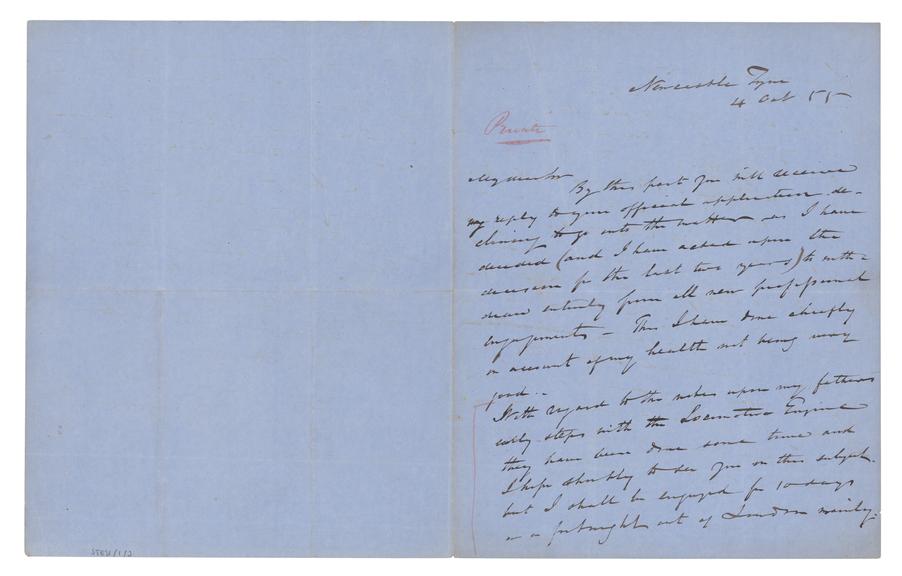 Newcastle Tyne
4 Oct 55
Private
My dear Sir
By this post you will receive
my reply to your official application de-
clining to go into the matter as I have
decided (and I have acted upon the
decision for the last two years) to with=
draw entirely from all new professional
engagements – This I have done chiefly
on account of my health not being very
good..
With regard to the notes upon my fathers
early steps with the Locomotive Engine
they have been done some time and
I hope shortly to see you on this subject.
but I shall be engaged for 10 days
or a fortnight out of London mainly.
STEP/1/2